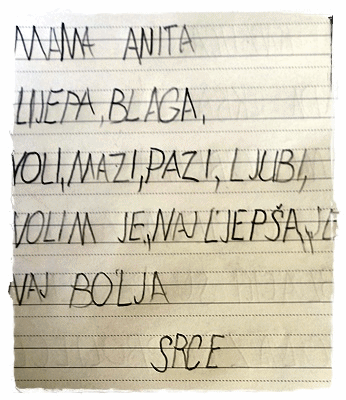 MAMA ANITA
LIJEPA, BLAGA,
VOLI, MAZI, PAZI, LJUBI,
VOLIM JE, NAJ LJEPŠA, JE
NAJ BOLJA
SRCE